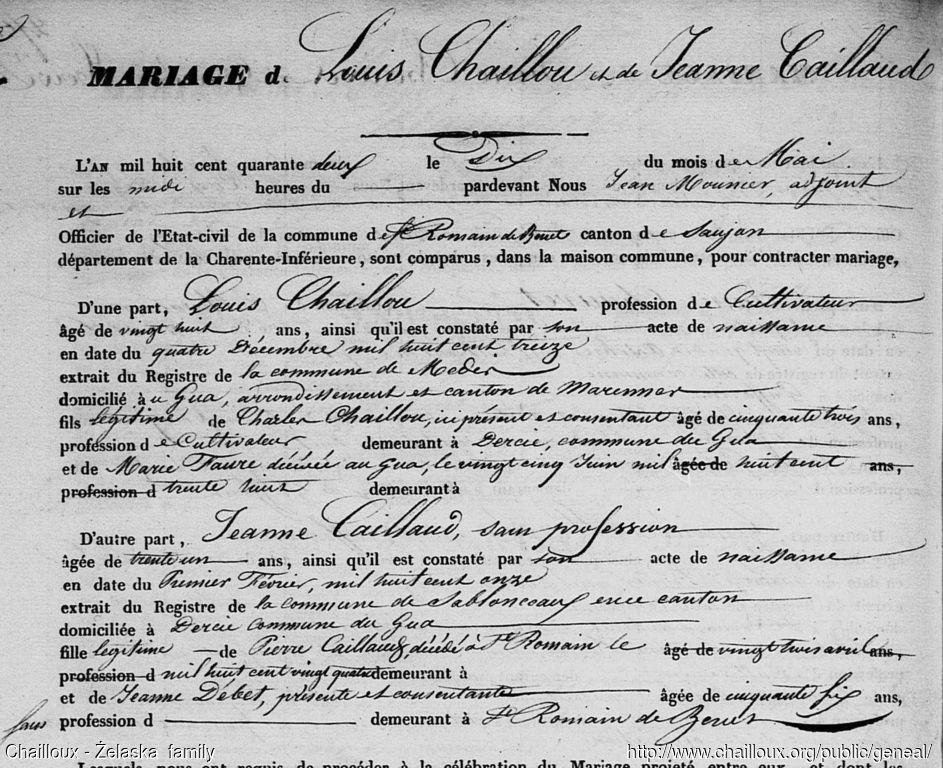 MARIAGE de Louis Chaillou et de Jeanne Caillaud
L'AN mil huit cent quarante deux le Dix du mois de Mai
sur les midi heures du pardevant Nous Jean Mounier, adjoint
et
Officier de l'Etat-civil de la commune de St Romain de Benet canton de Saujon
département de la Charente-Inférieure, sont comparus, dans la maison commune, pour contracter mariage,
D'une part, Louis Chaillou profession de Cultivateur
âgé de vingt huit ans, ainsi qu'il est constaté par son acte de naissance
en date du quatre Décembre mil huit cent treize
extrait du Registre de la commune de Medis
domicilié à u Gua, arrondissement et canton de Marennes
fils légitime de Charles Chaillou, ici présent et consentant âgé de cinquante trois ans,
profession de Cultivateur demeurant à Dercie, commune du Gua
et de Marie Faure décédée au Gua, le vingt cinq Juin mil âgée de huit cent ans,
profession d trente huit demeurant à
D'autre part, Jeanne Caillaud, sans profession
âgée de trente un ans, ainsi qu'il est constaté par son acte de naissance
en date du Premier Février, mil huit cent onze
extrait du Registre de la commune de Sablonceaux en ce canton
domiciliée à Dercie commune du Gua
fille légitime de Pierre Caillaud décédé à St Romain le âgé de vingt trois avril ans,
profession d mil huit cent vingt quatre demeurant à
et de Jeanne Debet, présente et consentante âgée de cinquante six ans,
sans profession d demeurant à St Romain de Benet
Lesquels nous ont requis de procéder à la célébration du Mariage projeté entre eux, et dont les
Chailloux - Żelaska family
http://www.chailloux.org/public/geneal/